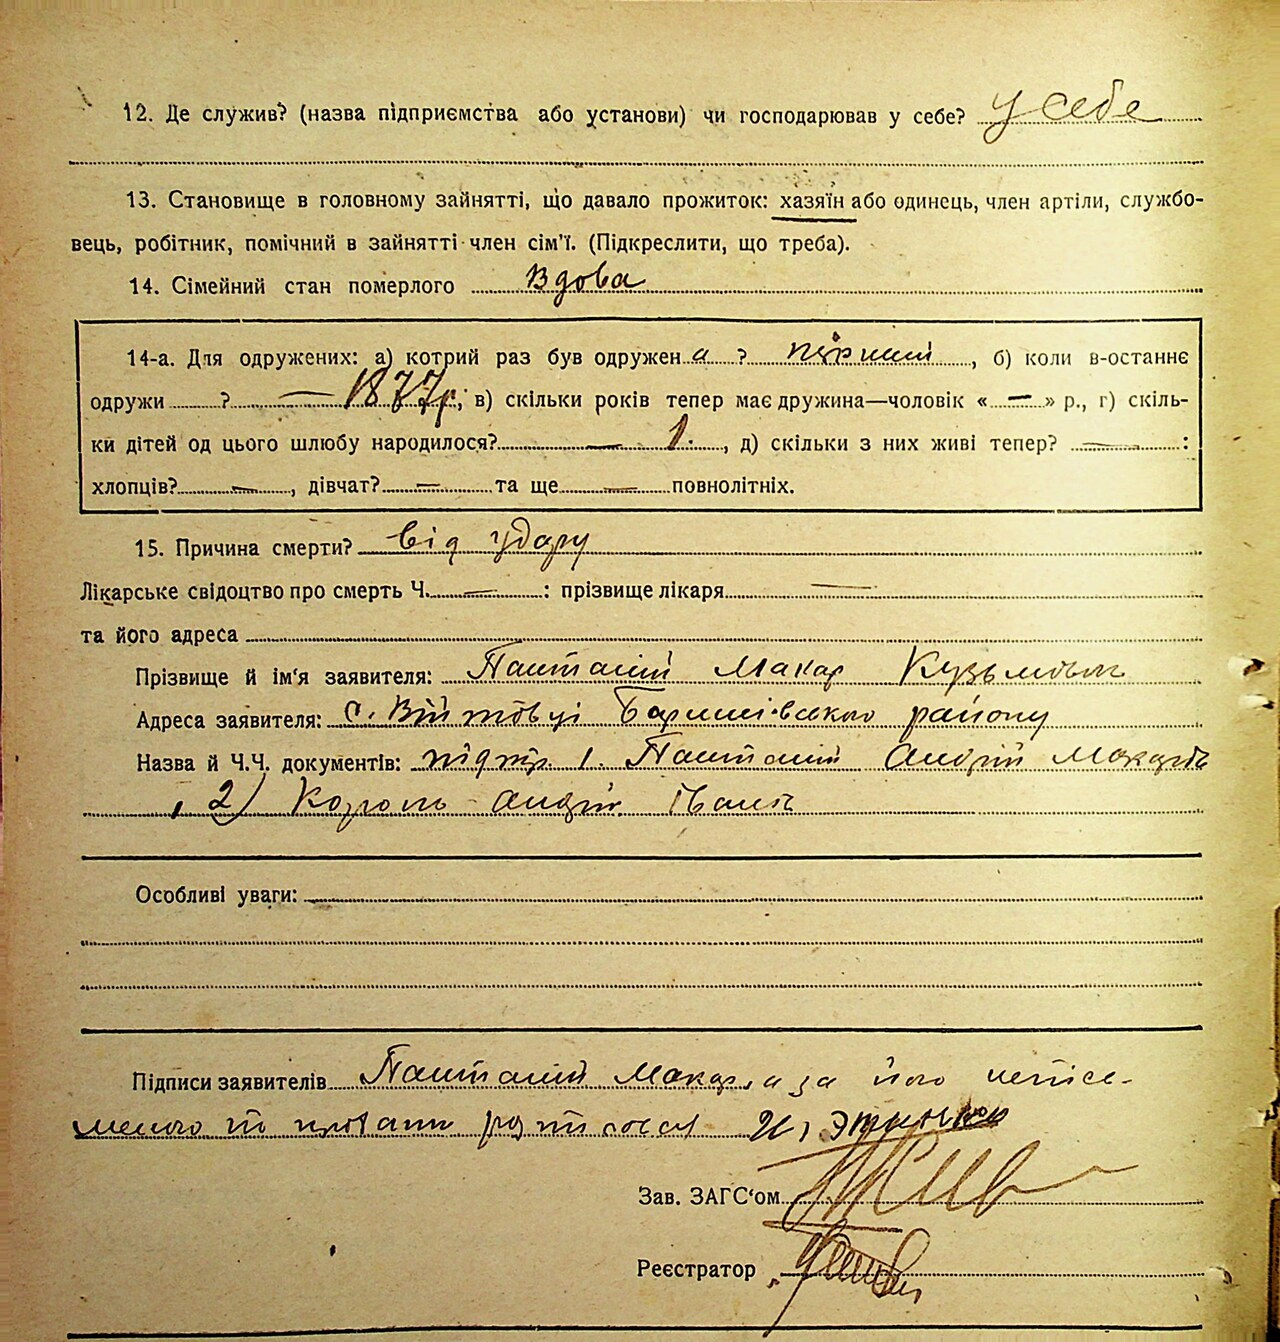 12. Де служив? (назва підприємства або установи) чи господарював у себе? у себе
13. Становище в головному зайнятті, що давало прожиток: хазяїн або одинець, член артіли, службо-
вець, робітник, помічний в зайнятті член сім'ї. (Підкреслити, що треба).
14. Сімейний стан померлого Вдова
14-а. Для одружених: а) котрий раз був одружен а ? перший, б) коли в-останнє
одружи ? — 1877р., в) скільки років тепер має дружина—чоловік « — » р., г) скіль-
ки дітей од цього шлюбу народилося? — 1., д) скільки з них живі тепер? — :
хлопців? — , дівчат? — та ще — повнолітніх.
15. Причина смерти? від удару
Лікарське свідоцтво про смерть Ч. — : прізвище лікаря —
та його адреса
Прізвище й ім'я заявителя: Макар Кузьмович
Адреса заявителя: с. Війтовці Баришівського району
Назва й Ч.Ч. документів: 1. Андрій
2) Король Андрій
Особливі уваги:
Підписи заявителів Макар, а за його
Зав. ЗАГС'ом
Реєстратор